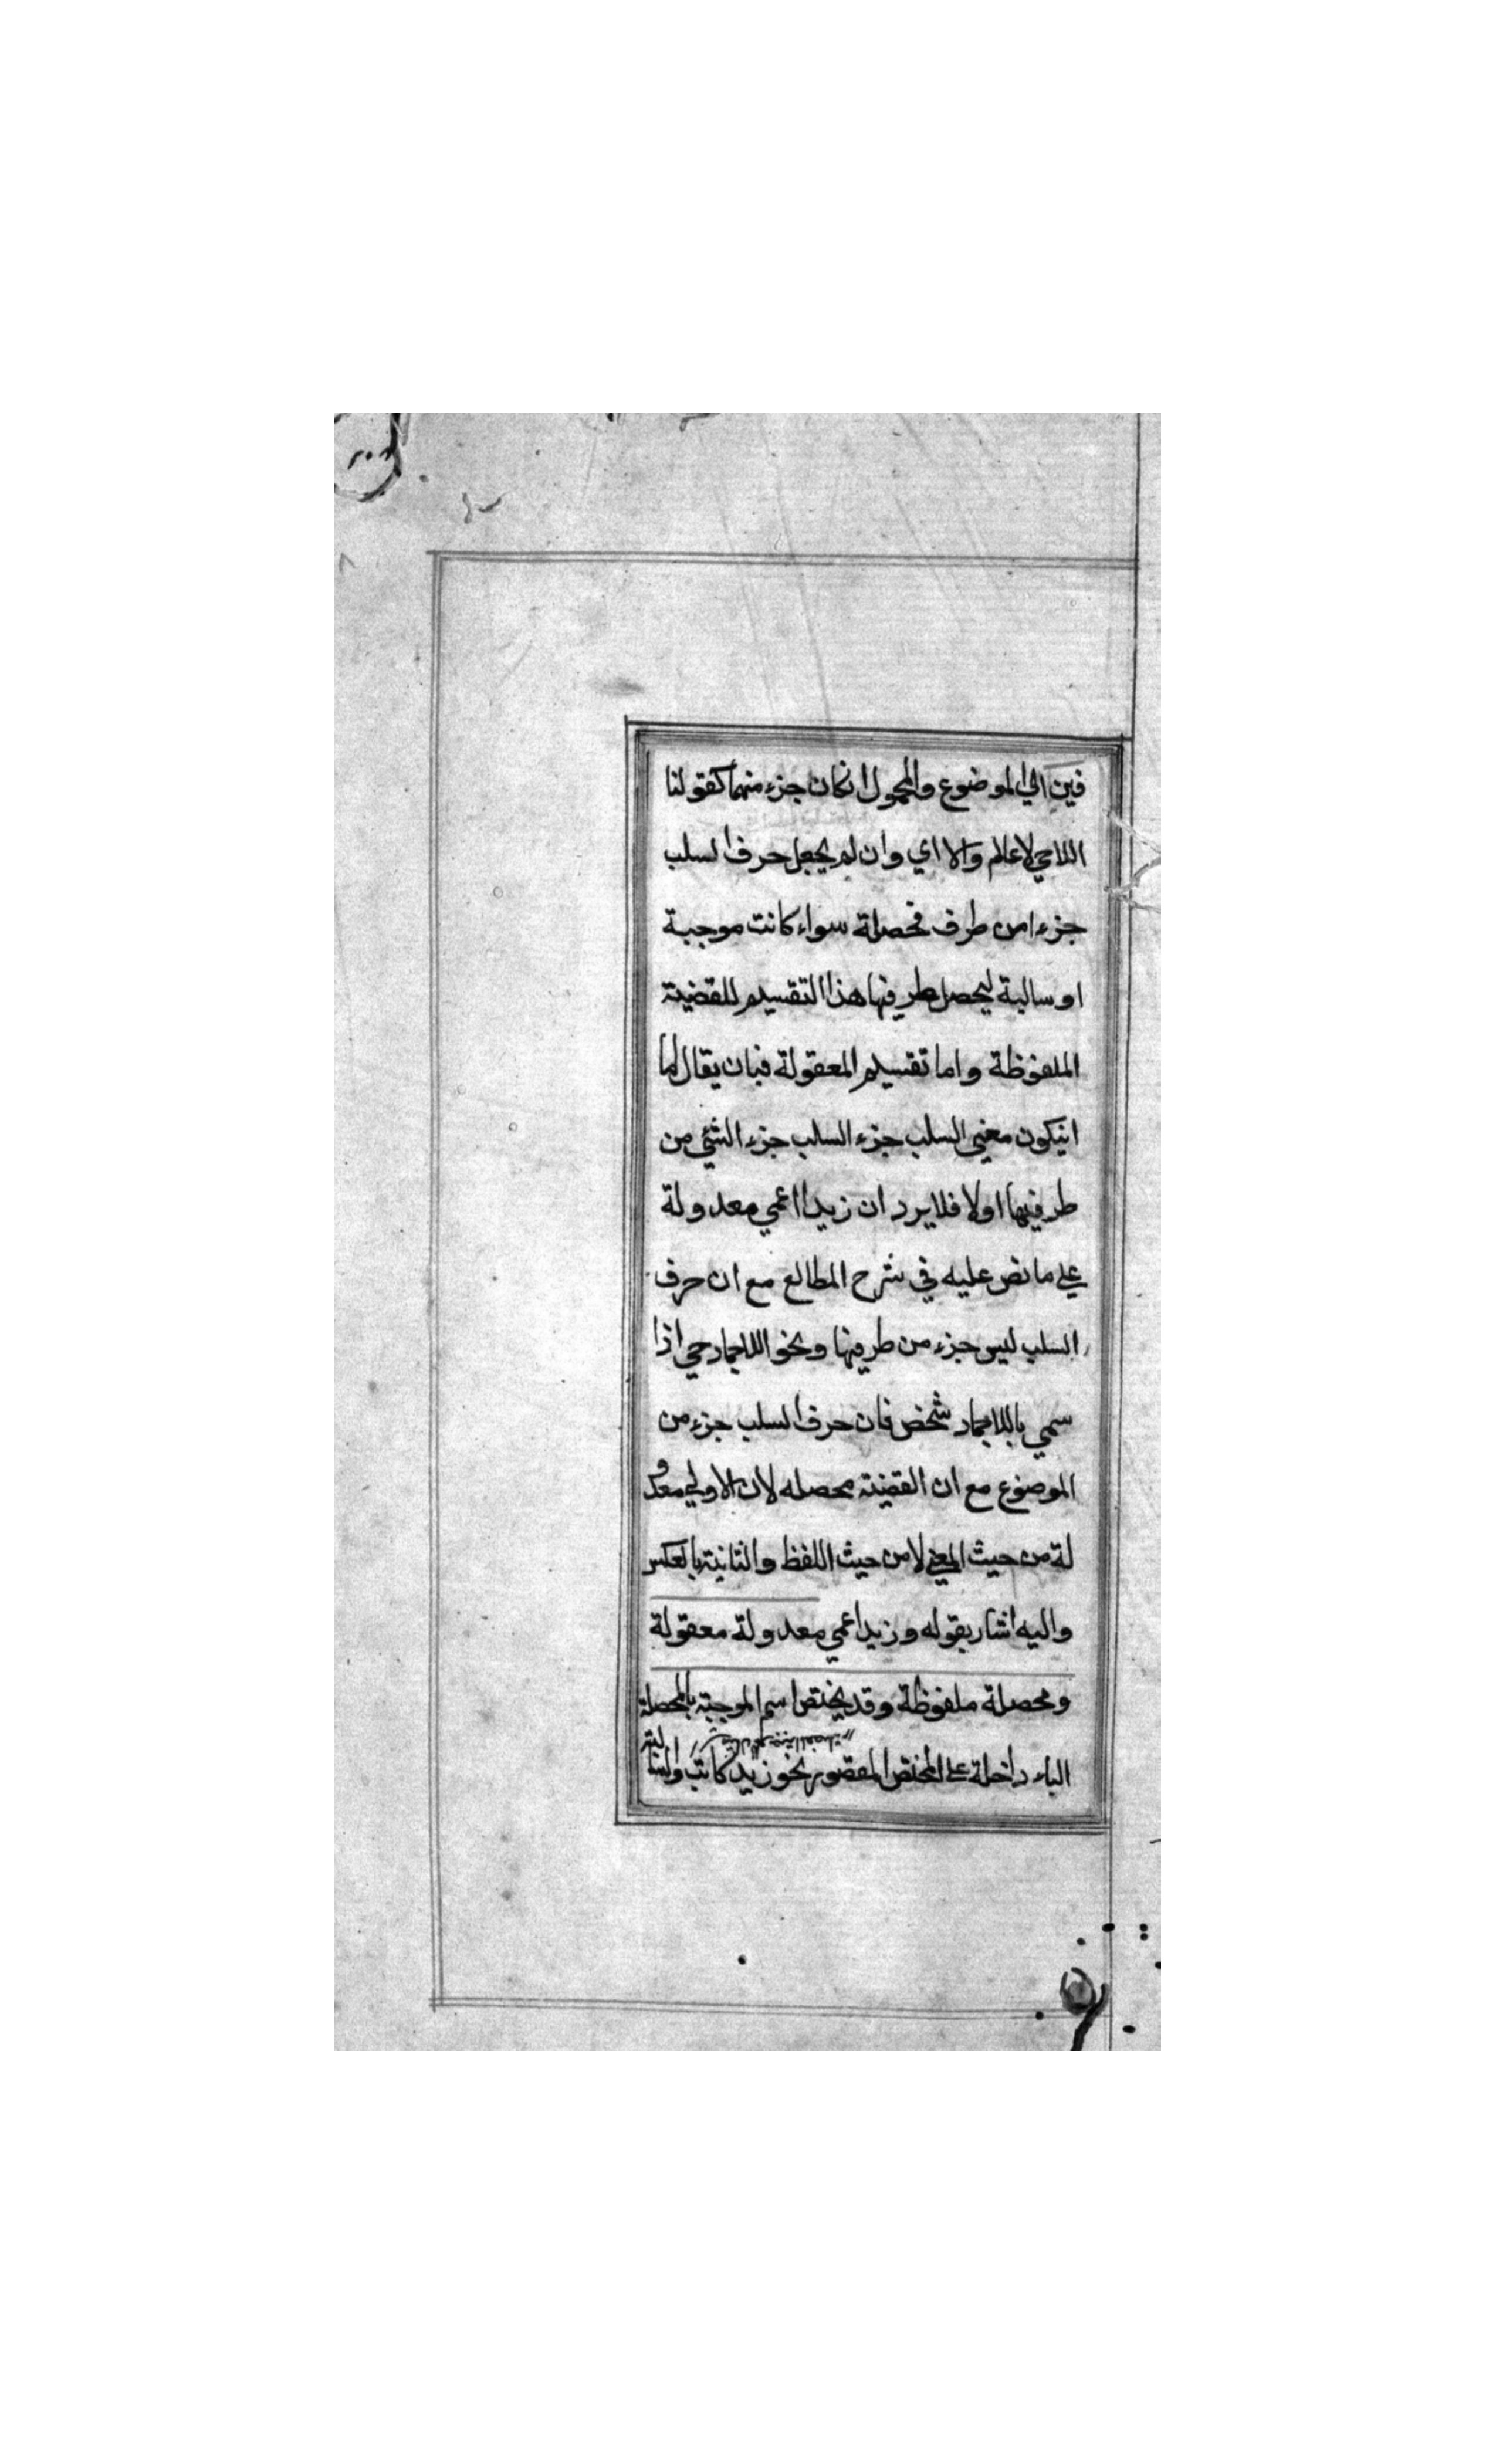 فين اي الموضوع والمحمول انكان جزء منهما كقولنا
اللاحي لاعالم والا اي وان لم يجعل حرف السلب
جزءا من طرف فمحصلة سواء كانت موجبة
او سالبة ليحصل طرفيها هذا التقسيم للقضية
الملفوظة واما تقسيم المعقولة فبان يقال اما
انيكون معنى السلب جزء السلب جزء الشئ من
طرفيها اولا فلا يرد ان زيدا اعمي معدولة
علي ما نص عليه في شرح المطالع مع ان حرف
السلب ليس جزء من طرفيها ونحو اللاجماد حي اذا
سمي باللاجماد شخص فان حرف السلب جزء من
الموضوع مع ان القضية محصله لان الاولي معدو
لة من حيث المعني لا من حيث اللفظ والثانية بالعكس
واليه اشار بقوله وزيد اعمي معدولة معقولة
ومحصلة ملفوظة وقد يختص اسم الموجبة بالمحصلة
الباء داخلة علي المختص المقصور نحو زيد كاتب والسا
لبة